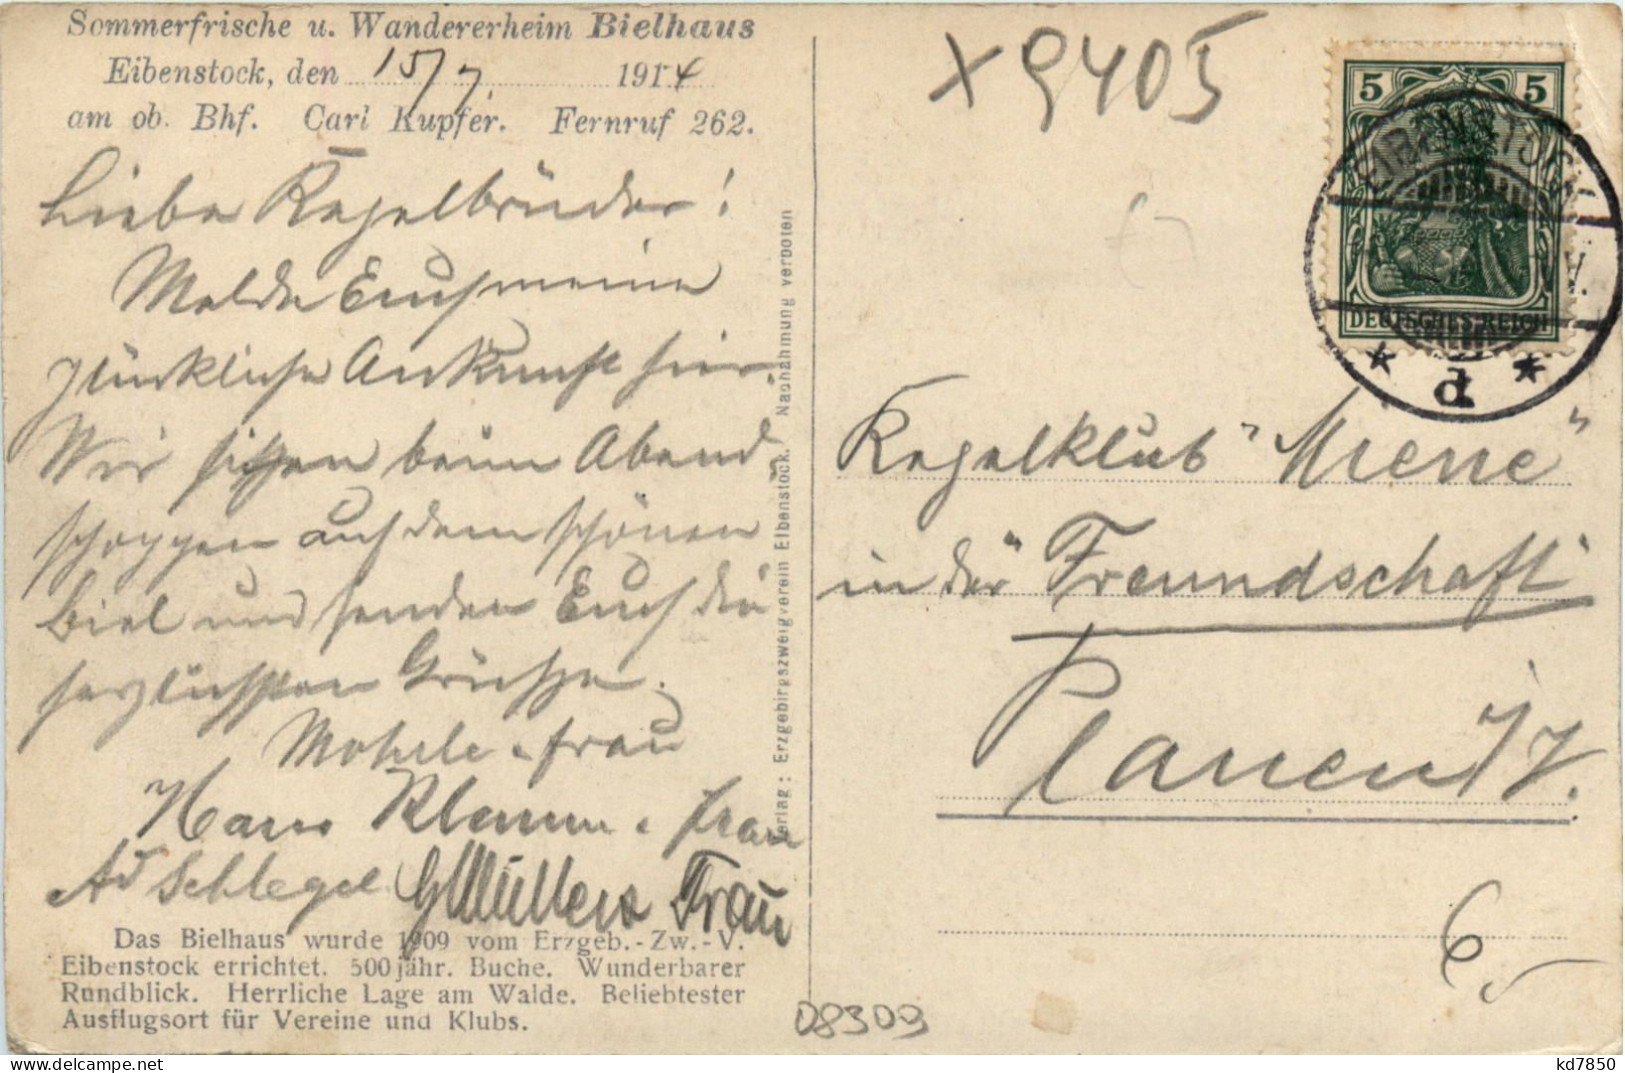 Sommerfrische u. Wandererheim Bielhaus
Eibenstock, den 15/7. 1914
am ob. Bhf. Carl Kupfer. Fernruf 262.
Liebe Kegelbrüder!
Melde Euch meine
glückliche Ankunft hier.
Wir sitzen beim Abend
schoppen auf dem schönen
Biel und senden Euch die
herzlichsten Grüße.
Frau
Hans Klemm u. Frau
Ad Schlegel G Müller u Frau
Das Bielhaus wurde 1909 vom Erzgeb.-Zw.-V.
Eibenstock errichtet. 500jähr. Buche. Wunderbarer
Rundblick. Herrliche Lage am Walde. Beliebtester
Ausflugsort für Vereine und Klubs.
Verlag: Erzgebirgszweigverein Eibenstock. Nachahmung verboten
x 9405
5 5
DEUTSCHES REICH
EIBENSTOCK
* d *
Kegelklub "Miene"
in der "Freundschaft"
Plauen i/V.
6
08309
kd7850